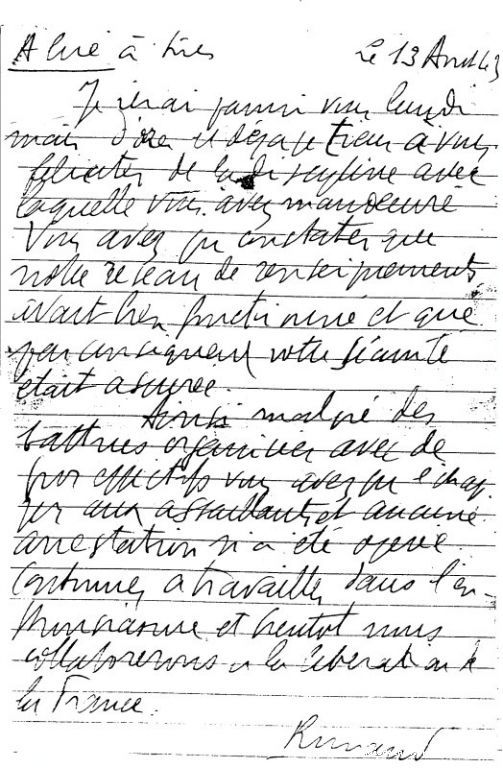 A lire à tous Le 13 Avril 43
Je serai parmi vous lundi
mais d'ores et déjà je tiens à vous
féliciter de la discipline avec
laquelle vous avez manoeuvré
Vous avez pu constater que
notre réseau de renseignements
avait bien fonctionné et que
par conséquent votre sécurité
était assurée.
Ainsi malgré des
battues organisées avec de
gros effectifs vous avez pu échap-
per aux assaillants et aucune
arrestation n'a été opérée
Continuez à travailler dans l'en-
thousiasme et bientôt nous
collaborerons à la libération de
la France.